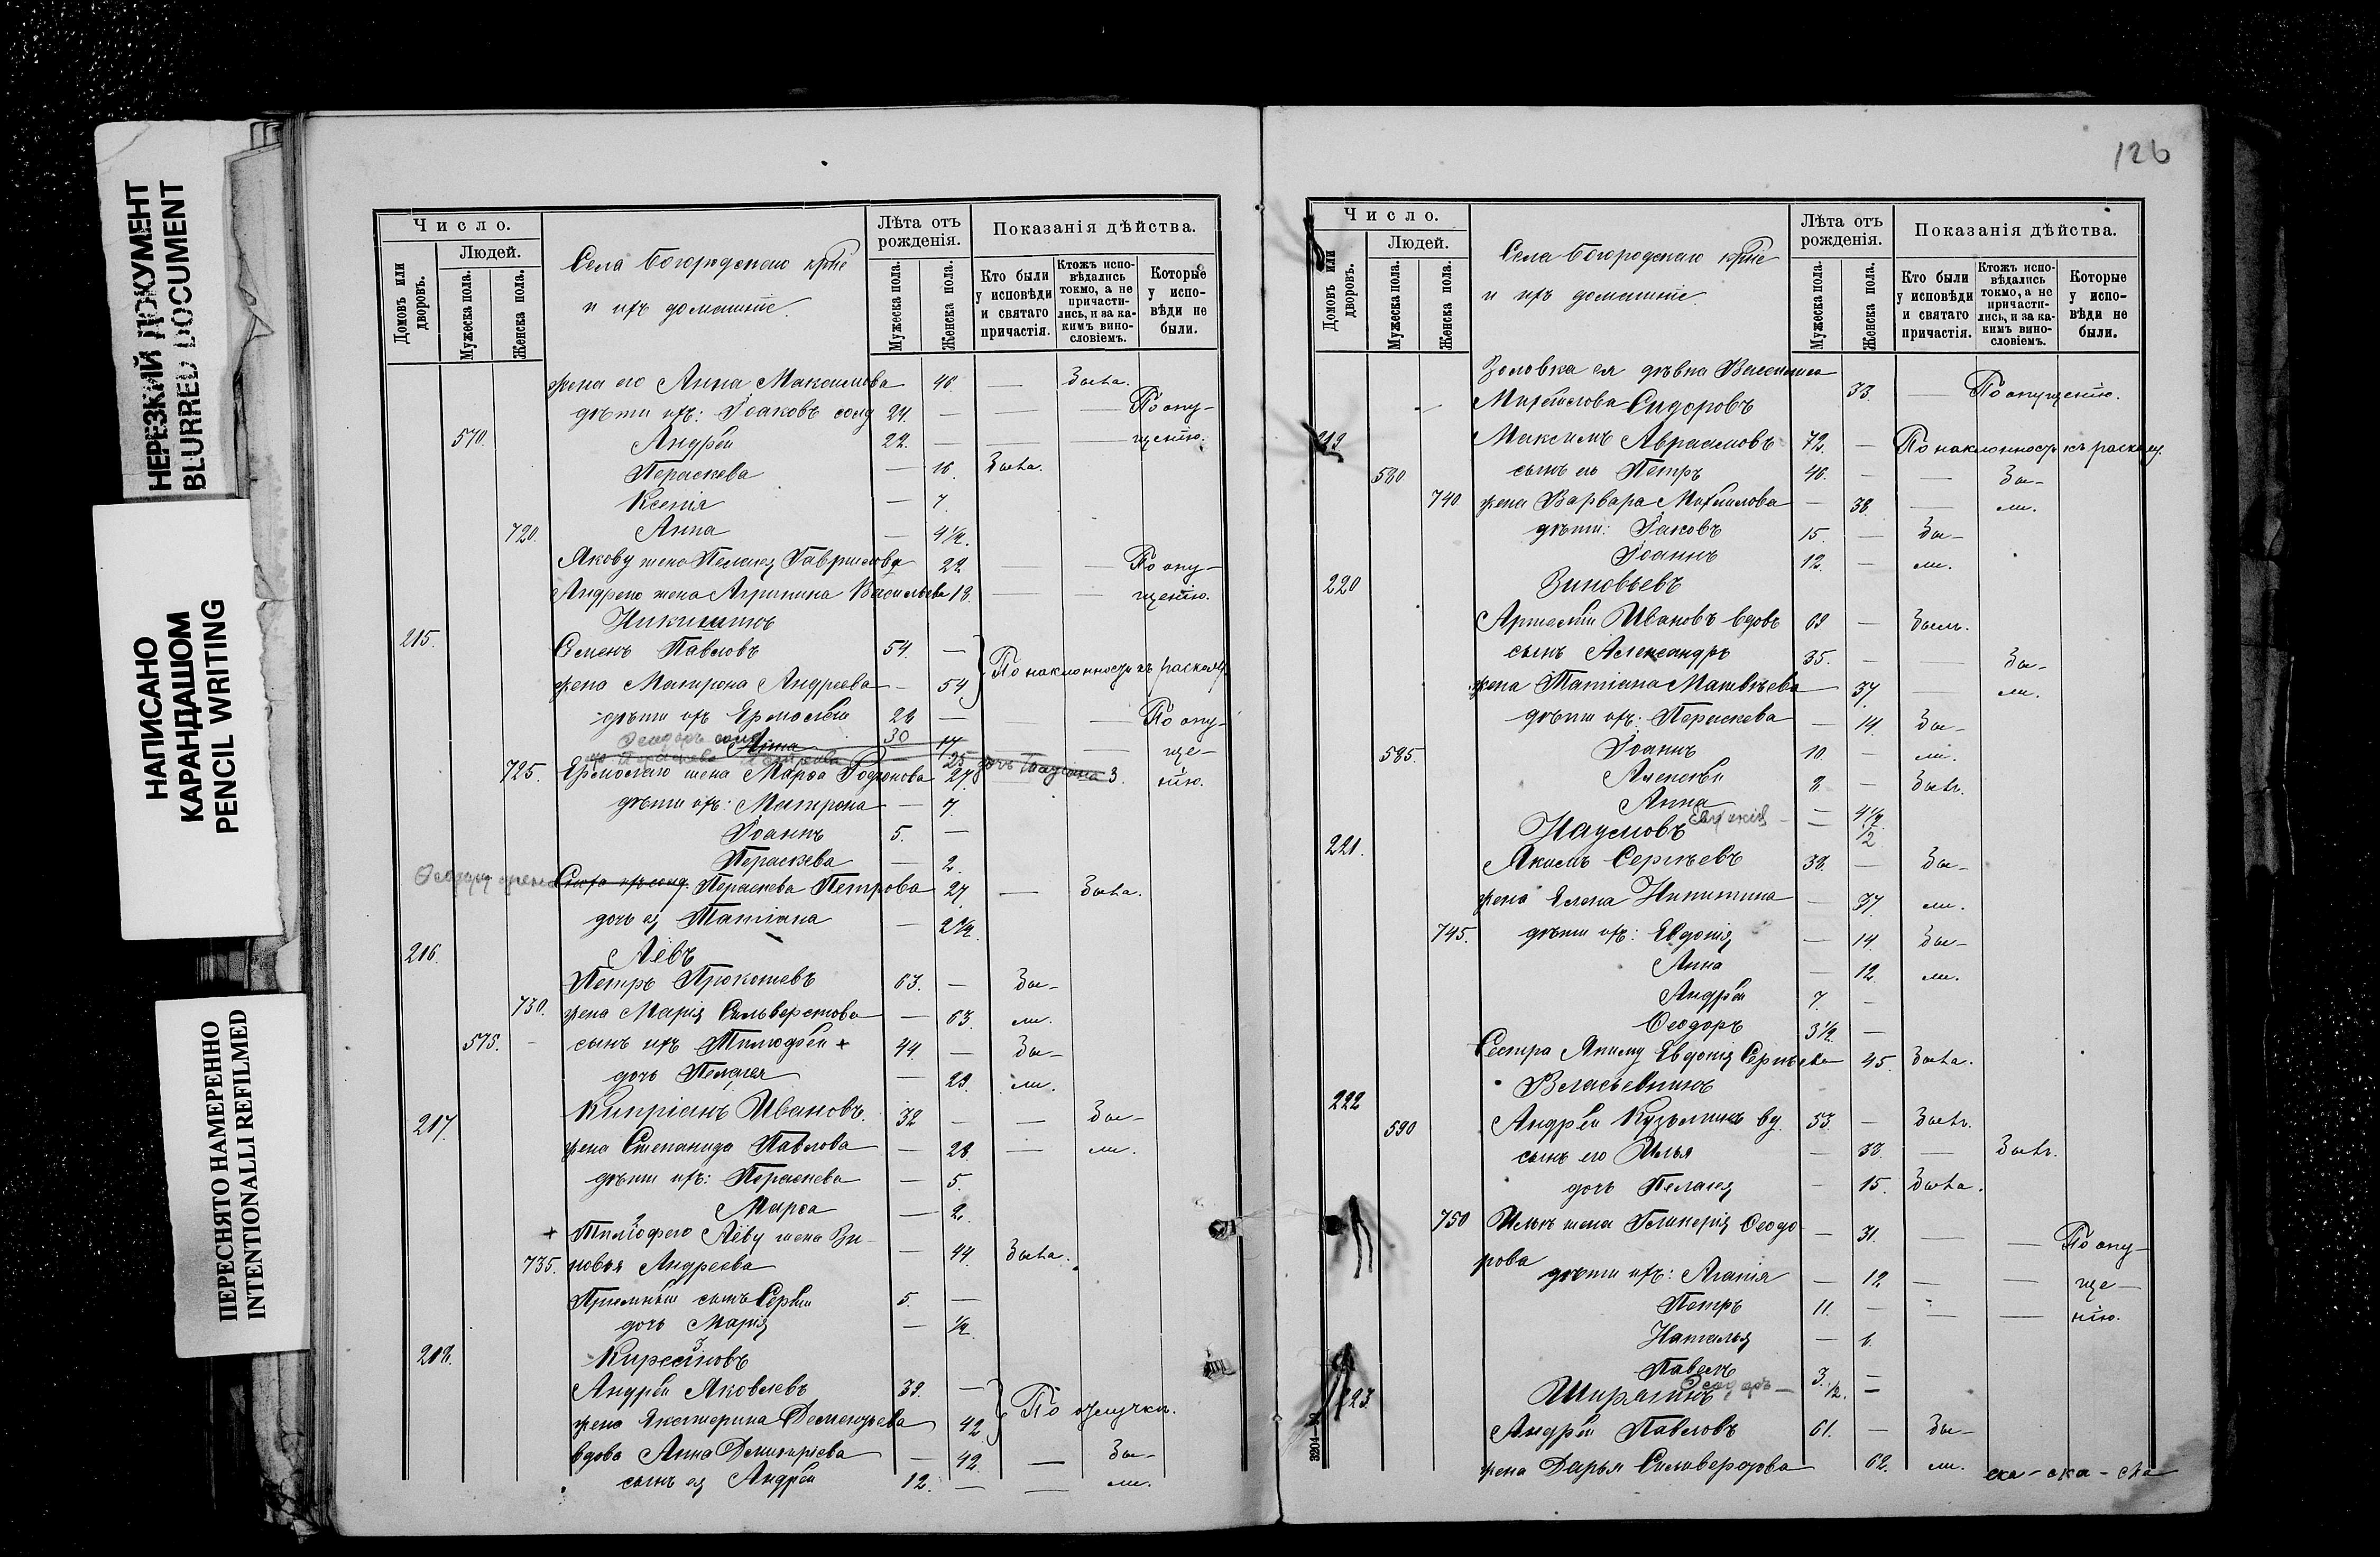 НЕРЕЗКИЙ ДОКУМЕНТ
BLURRED DOCUMENT
НАПИСАНО
КАРАНДАШОМ
PENCIL WRITING
ПЕРЕСНЯТО НАМЕРЕННО
INTENTIONALLI REFILMED
Число.
Людей.
Домовъ или дворовъ.
Мужеска пола.
Женска пола.
Села Богородскаго крне
и ихъ домашніе.
Лѣта отъ рожденія.
Мужеска пола.
Женска пола.
Показанія дѣйства.
Кто были у исповѣди и святаго причастія.
Ктожъ исповѣдались токмо, а не причастились, и за какимъ винословіемъ.
Которые у исповѣди не были.
жена его Анна Максимова 46 — Была.
дѣти ихъ: Іоаковъ солд 24. — — — По опу-
570. Андрей 22. — — щенію.
Параскева — 16. Была.
Ксенія — 7.
720. Анна — 4½.
Якову жена Пелагія Гаврилова 22 — По опу-
Андрею жена Агрипина Васильева 18. — — щенію.
Никишинъ
215. Семенъ Павловъ 54. — По наклонност. къ расколу.
жена Матрона Андреева — 54
дѣти ихъ Ермолай 26 — — — По опу-
Ѳеодоръ солд 30
Анна 17 — ще-
Параскева Петрова 25 дочь Татіана 3.
725. Ермолаю жена Марѳа Родіонова 27. нію.
дѣти ихъ: Матрона — 7.
Іоаннъ 5. —
Параскева — 2.
Ѳеодору жена Параскева Петрова 27 — Была.
дочь ея Татіана — 2½.
216. Лёвъ
Петръ Прокопьевъ 63. — Бы-
730. жена Марія Сильверстова — 63. ли.
575. — сынъ ихъ Тимофей + 44. — Бы-
дочь Пелагея — 29. ли.
217. Кипріанъ Ивановъ. 32 — — Бы-
жена Степанида Павлова — 28 — ли.
дѣти ихъ: Параскева — 5.
Марѳа — 2.
+ Тимофею Лёву жена Зи-
735. новья Андреева — 44. Была.
Пріемный сынъ Сергій 5. —
дочь Марія — ½.
218. Кирсановъ
Андрей Яковлевъ 39. — По отлучкѣ.
жена Екатерина Дементьева 42
вдова Анна Димитріева — 42 — Бы-
сынъ ея Андрей 12. — — ли.
126
Число.
Людей.
Домовъ или дворовъ.
Мужеска пола.
Женска пола.
Села Богородскаго крне
и ихъ домашніе.
Лѣта отъ рожденія.
Мужеска пола.
Женска пола.
Показанія дѣйства.
Кто были у исповѣди и святаго причастія.
Ктожъ исповѣдались токмо, а не причастились, и за какимъ винословіемъ.
Которые у исповѣди не были.
Золовка ея дѣвка Василиса
Михайлова Сидоровъ 33. — По опущенію.
219 Максимъ Авраамовъ 72. — По наклонност. къ расколу.
580 сынъ его Петръ 40. — — Бы-
740 жена Варвара Михайлова — 38. — ли.
дѣти: Іаковъ 15. — Бы-
Іоаннъ 12. — ли.
220 Зиновьевъ
Артемій Ивановъ вдовъ 69 — Былъ.
сынъ Александръ 35. — — Бы-
жена Татіана Матвѣева 37. — ли.
дѣти ихъ: Параскева — 14. Бы-
585. Іоаннъ 10. — ли.
Алексѣй 8 — Былъ.
Анна — 4½.
Евдокія — ½
221. Наумовъ
Якимъ Сергѣевъ 38. — Бы-
жена Елена Никитина — 37. ли.
745. дѣти ихъ: Евдокія — 14. Бы-
Анна — 12. ли.
Андрей 7. —
Ѳеодоръ 3½. —
Сестра Якиму Евдокія Сергѣева 45. Была.
222 Власьевнинъ
590 Андрей Кузьминъ вд. 53. — Былъ.
сынъ его Илья — 38. — Былъ.
дочь Пелагея — 15. Была.
750 Ильѣ жена Гликерія Ѳеодо-
рова — 31. — — По опу-
дѣти ихъ: Агапія — 12 — — ще-
Петръ 11. — — — нію.
Наталья — 6.
Павелъ 3. —
Ѳеодоръ — ½. —
223. Ширагинъ
Андрей Павловъ 61. — Бы-
жена Дарья Сильверстова 62. ли.
ска - ска - ска
3204—